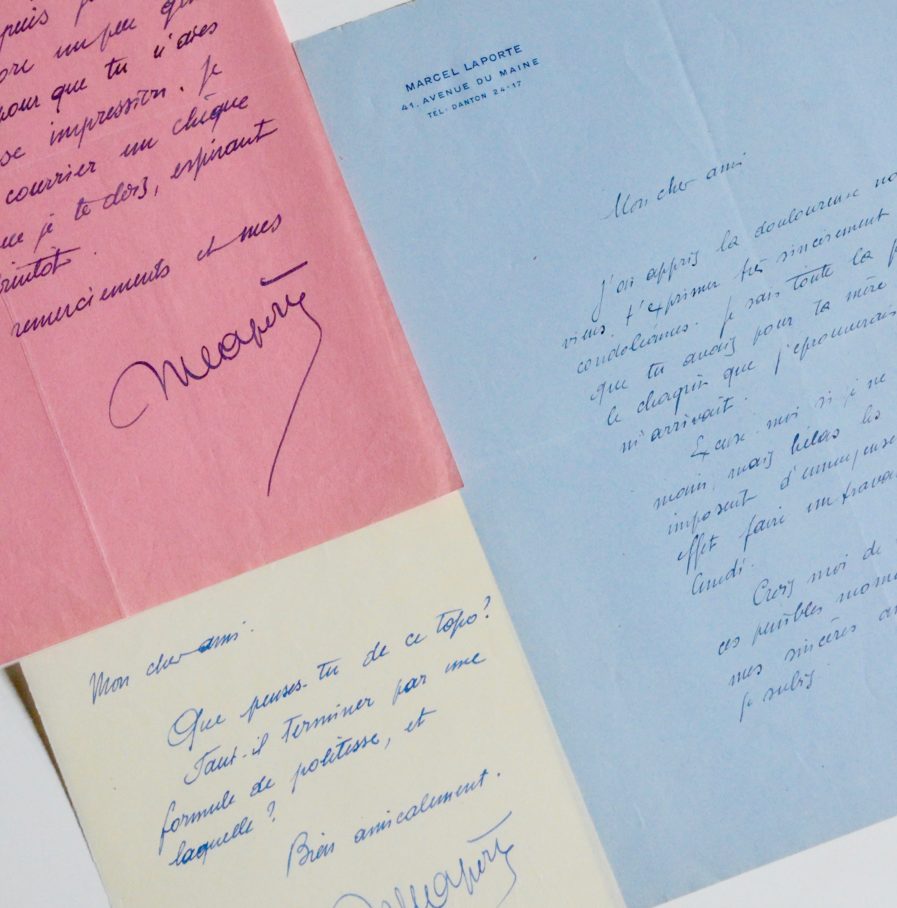 puis
un peu
pour que tu n'aies
se impression. Je
courrier un chèque
que je te dois, espérant
bientôt.
remerciements et mes
MLaporte
MARCEL LAPORTE
41, AVENUE DU MAINE
TÉL. DANTON 24-17
Mon cher ami
J'ai appris la douloureuse
viens t'exprimer très sincèrement
condoléances. Je sais toute la
que tu avais pour ta mère
le chagrin que j'éprouverais
m'arrivait.
Excuse moi si je ne
mais hélas les
imposent d'ennuyeuse
effet faire un
Lundi.
Crois moi de
ces pénibles
mes sincères
je subis
Mon cher ami.
Que penses-tu de ce topo?
Faut-il terminer par une
formule de politesse, et
laquelle?
Bien amicalement.
MLaporte